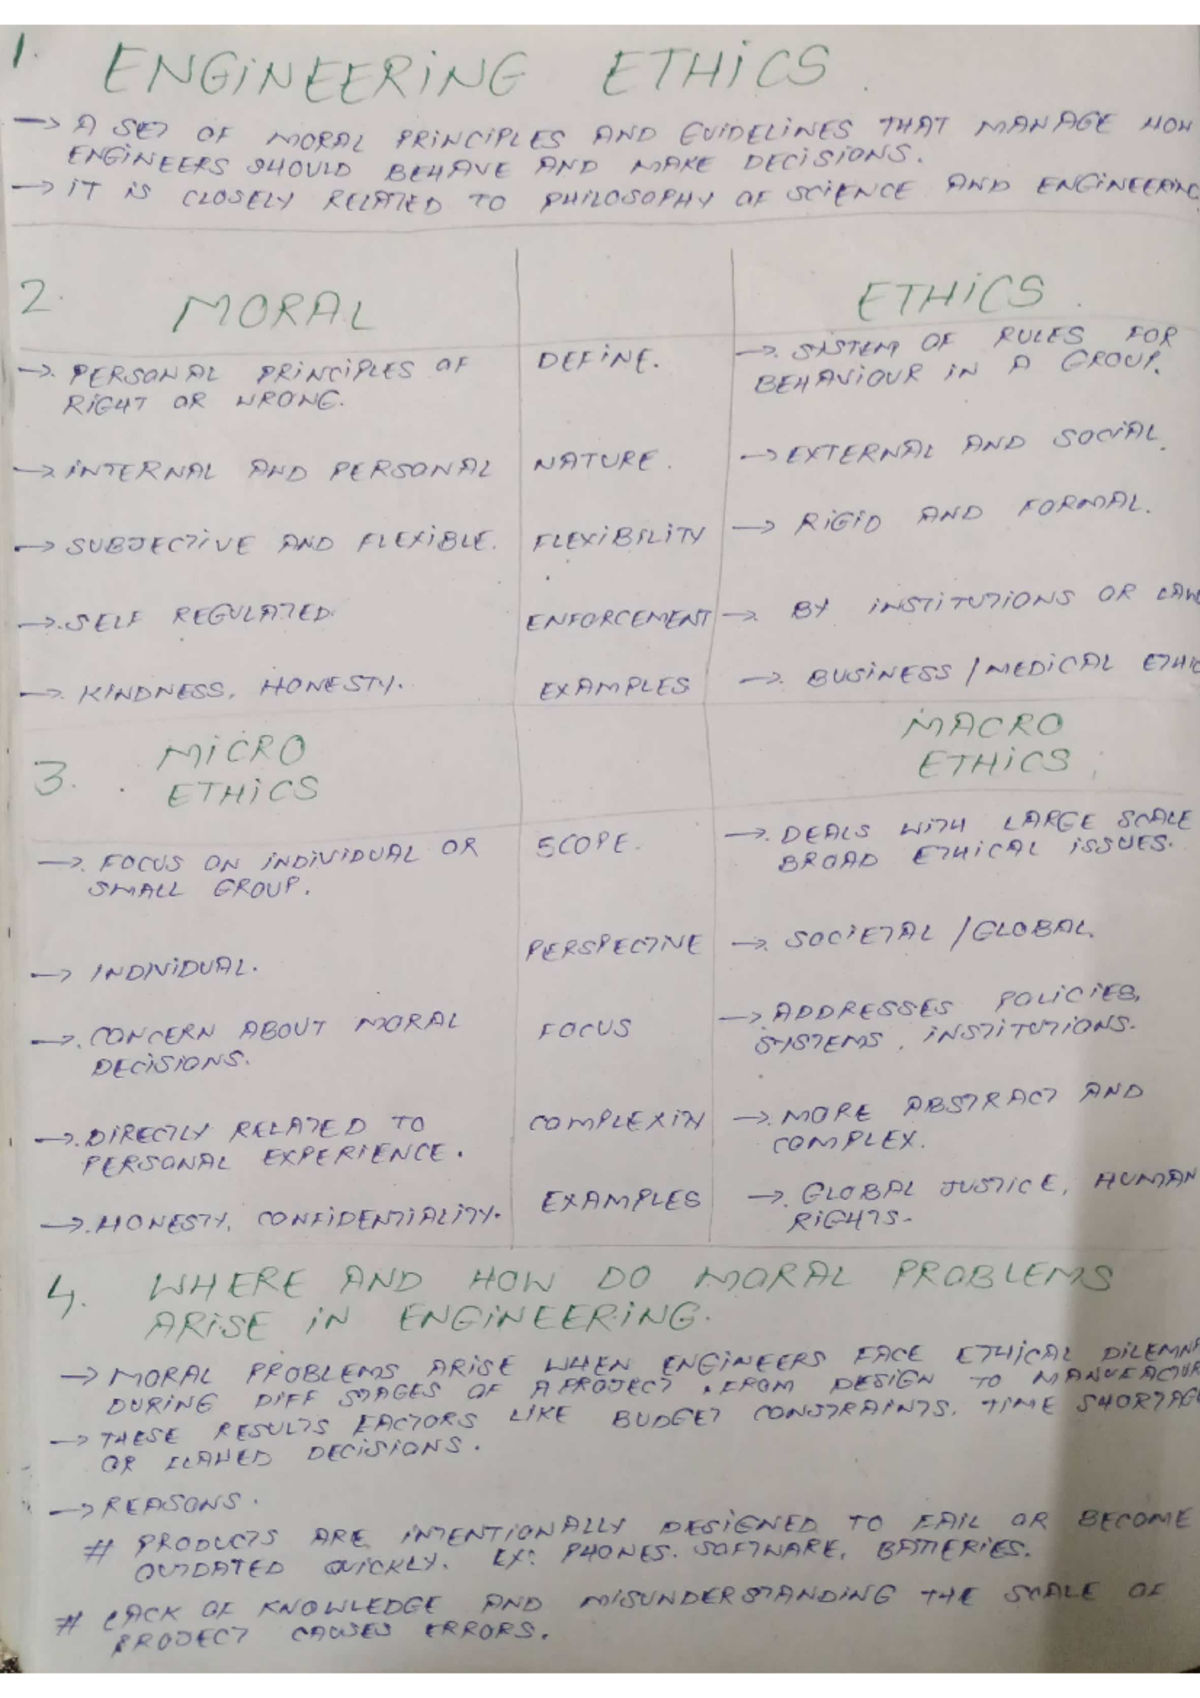 1. ENGINEERING ETHICS.
→ A SET OF MORAL PRINCIPLES AND GUIDELINES THAT MANAGE HOW
ENGINEERS SHOULD BEHAVE AND MAKE DECISIONS.
→ IT IS CLOSELY RELATED TO PHILOSOPHY OF SCIENCE AND ENGINEERING
2. MORAL ETHICS.
→ PERSONAL PRINCIPLES OF DEFINE. → SISTEM OF RULES FOR
RIGHT OR WRONG. BEHAVIOUR IN A GROUP.
→ INTERNAL AND PERSONAL NATURE. → EXTERNAL AND SOCIAL.
→ SUBJECTIVE AND FLEXIBLE. FLEXIBILITY → RIGID AND FORMAL.
→ SELF REGULATED. ENFORCEMENT → BY INSTITUTIONS OR LAW
→ KINDNESS, HONESTY. EXAMPLES → BUSINESS / MEDICAL ETHIC
3. MICRO MACRO
ETHICS ETHICS.
→ FOCUS ON INDIVIDUAL OR SCOPE. → DEALS WITH LARGE SCALE
SMALL GROUP. BROAD ETHICAL ISSUES.
→ INDIVIDUAL. PERSPECTIVE → SOCIETAL / GLOBAL.
→ CONCERN ABOUT MORAL FOCUS → ADDRESSES POLICIES,
DECISIONS. SYSTEMS, INSTITUTIONS.
→ DIRECTLY RELATED TO COMPLEXITY → MORE ABSTRACT AND
PERSONAL EXPERIENCE. COMPLEX.
→ HONESTY, CONFIDENTIALITY. EXAMPLES → GLOBAL JUSTICE, HUMAN
RIGHTS.
4. WHERE AND HOW DO MORAL PROBLEMS
ARISE IN ENGINEERING.
→ MORAL PROBLEMS ARISE WHEN ENGINEERS FACE ETHICAL DILEMM
DURING DIFF STAGES OF A PROJECT. FROM DESIGN TO MANUFACTUR
→ THESE RESULTS FACTORS LIKE BUDGET CONSTRAINTS, TIME SHORTAGE
OR FLAWED DECISIONS.
→ REASONS.
# PRODUCTS ARE INTENTIONALLY DESIGNED TO FAIL OR BECOME
OUTDATED QUICKLY. EX: PHONES. SOFTWARE, BATTERIES.
# LACK OF KNOWLEDGE AND MISUNDERSTANDING THE SCALE OF
PROJECT CAUSES ERRORS.